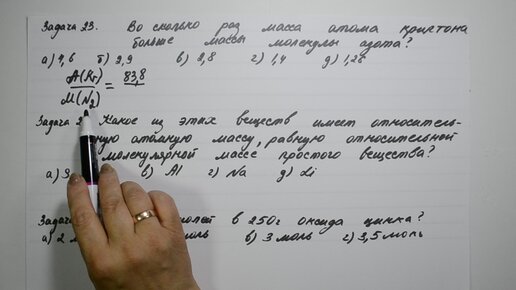 Задача 23. Во сколько раз масса атома криптона
больше массы молекулы азота?
а) 1,6 б) 2,9 в) 2,8 г) 1,4 д) 1,25
A(Kr) = 83,8
M(N2)
Задача 2 Какое из этих веществ имеет относитель-
ную атомную массу, равную относительной
молекулярной массе простого вещества?
а) S в) Al г) Na д) Li
Задача молей в 250г оксида цинка?
а) 2 м оль в) 3 моль г) 3,5 моль